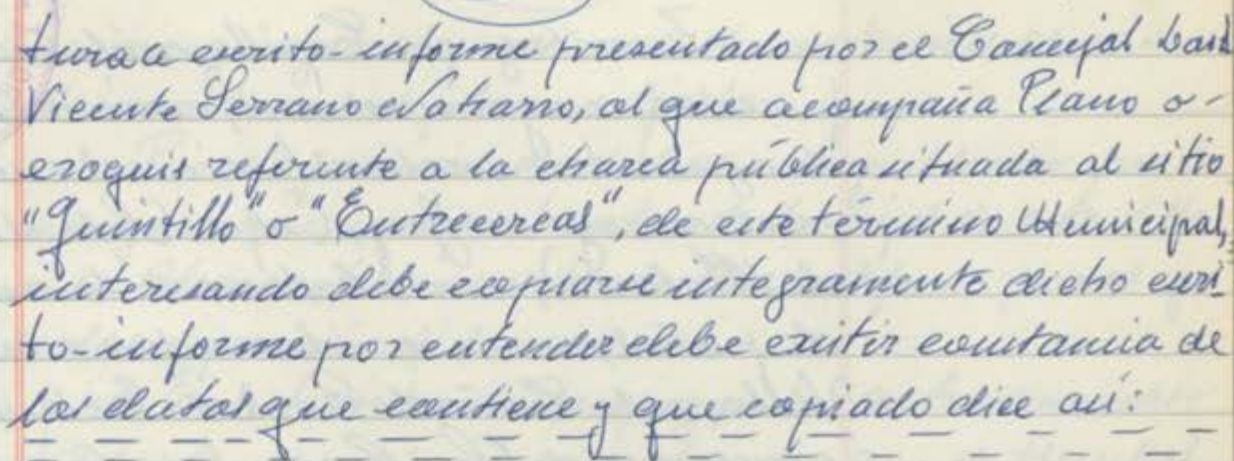 tura a escrito-informe presentado por el Concejal Don
Vicente Serrano Naharro, al que acompaña Plano o-
croquis referente a la charca pública situada al sitio
"Quintillo" o "Entrecercas", de este término Municipal,
interesando debe copiarse integramente dicho escri-
to-informe por entender debe existir constancia de
los datos que contiene y que copiado dice así: